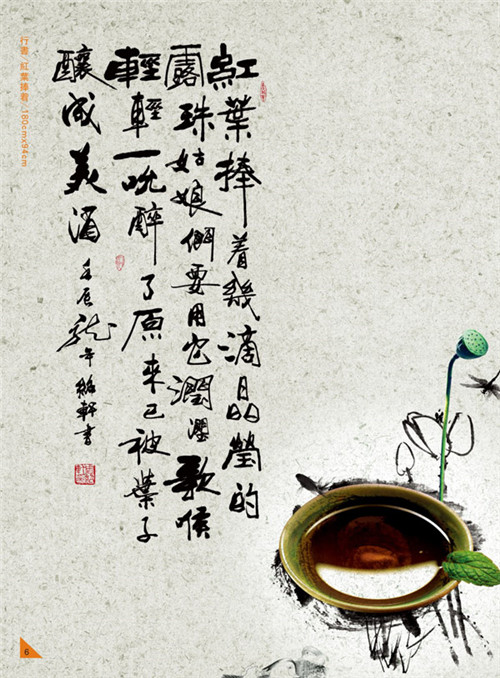 紅葉捧着幾滴晶瑩的
露珠姑娘們要用它潤潤歌喉
輕輕一吮醉了原來已被葉子
釀成美酒 壬辰龍年軒書
行書 紅葉捧着 180cmx94cm
6